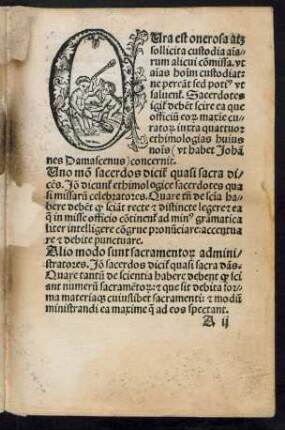 CUra est onerosa atq̃
sollicita custodia aīa⸗
rum alicui cōmissa. vt
aīas hoīm custodiat:
ne pereāt sed potiꝰ vt
saluent̃. Sacerdotes
igit̃ debẽt scire ea que
officiū eoꝝ maxīe cu⸗
ratoꝝ iuxta quattuor
ethimologias huius
noīs (vt habet Johā⸗
nes Damascenus) concernit.
Uno mō sacerdos dicit̃ quasi sacra di⸗
cēs. Jō dicunt̃ ethimologice sacerdotes qua
si missarū celebratores. Quare tm̄ de sciā ha⸗
bere debēt ꝙ sciāt recte ⁊ distincte legere: ⁊ ea
q̄ in misse officio cōtinent̃ ad minꝰ gramatica
liter intelligere cōgrue pronūciare: accentua
re ⁊ debite punctuare.
Alio modo sunt sacramentoꝝ admini⸗
stratores. Jō sacerdos dicit̃ quasi sacra dās.
Quare tantū de scientia habere debent ꝙ sci
ant numerū sacramētoꝝ: ⁊ que sit debita for⸗
ma materiaq̃ cuiuslibet sacramenti: ⁊ modū
ministrandi ea maxime q̄ ad eos spectant.
A ij